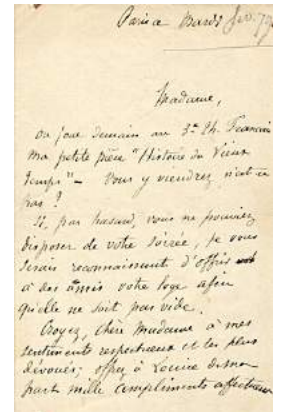 Paris Mardi
Madame,
On joue demain au 3e Th. Français
ma petite pièce "Histoire du Vieux
temps" – Vous y viendrez n'est-ce
pas ?
Si, par hasard, vous ne pouviez
disposer de votre soirée, je vous
serais reconnaissant d'offrir
à des amis votre loge afin
qu'elle ne soit pas vide.
Croyez, chère Madame à mes
sentiments respectueux et les plus
dévoués; offrez à Louise de ma
part mille compliments affectueux